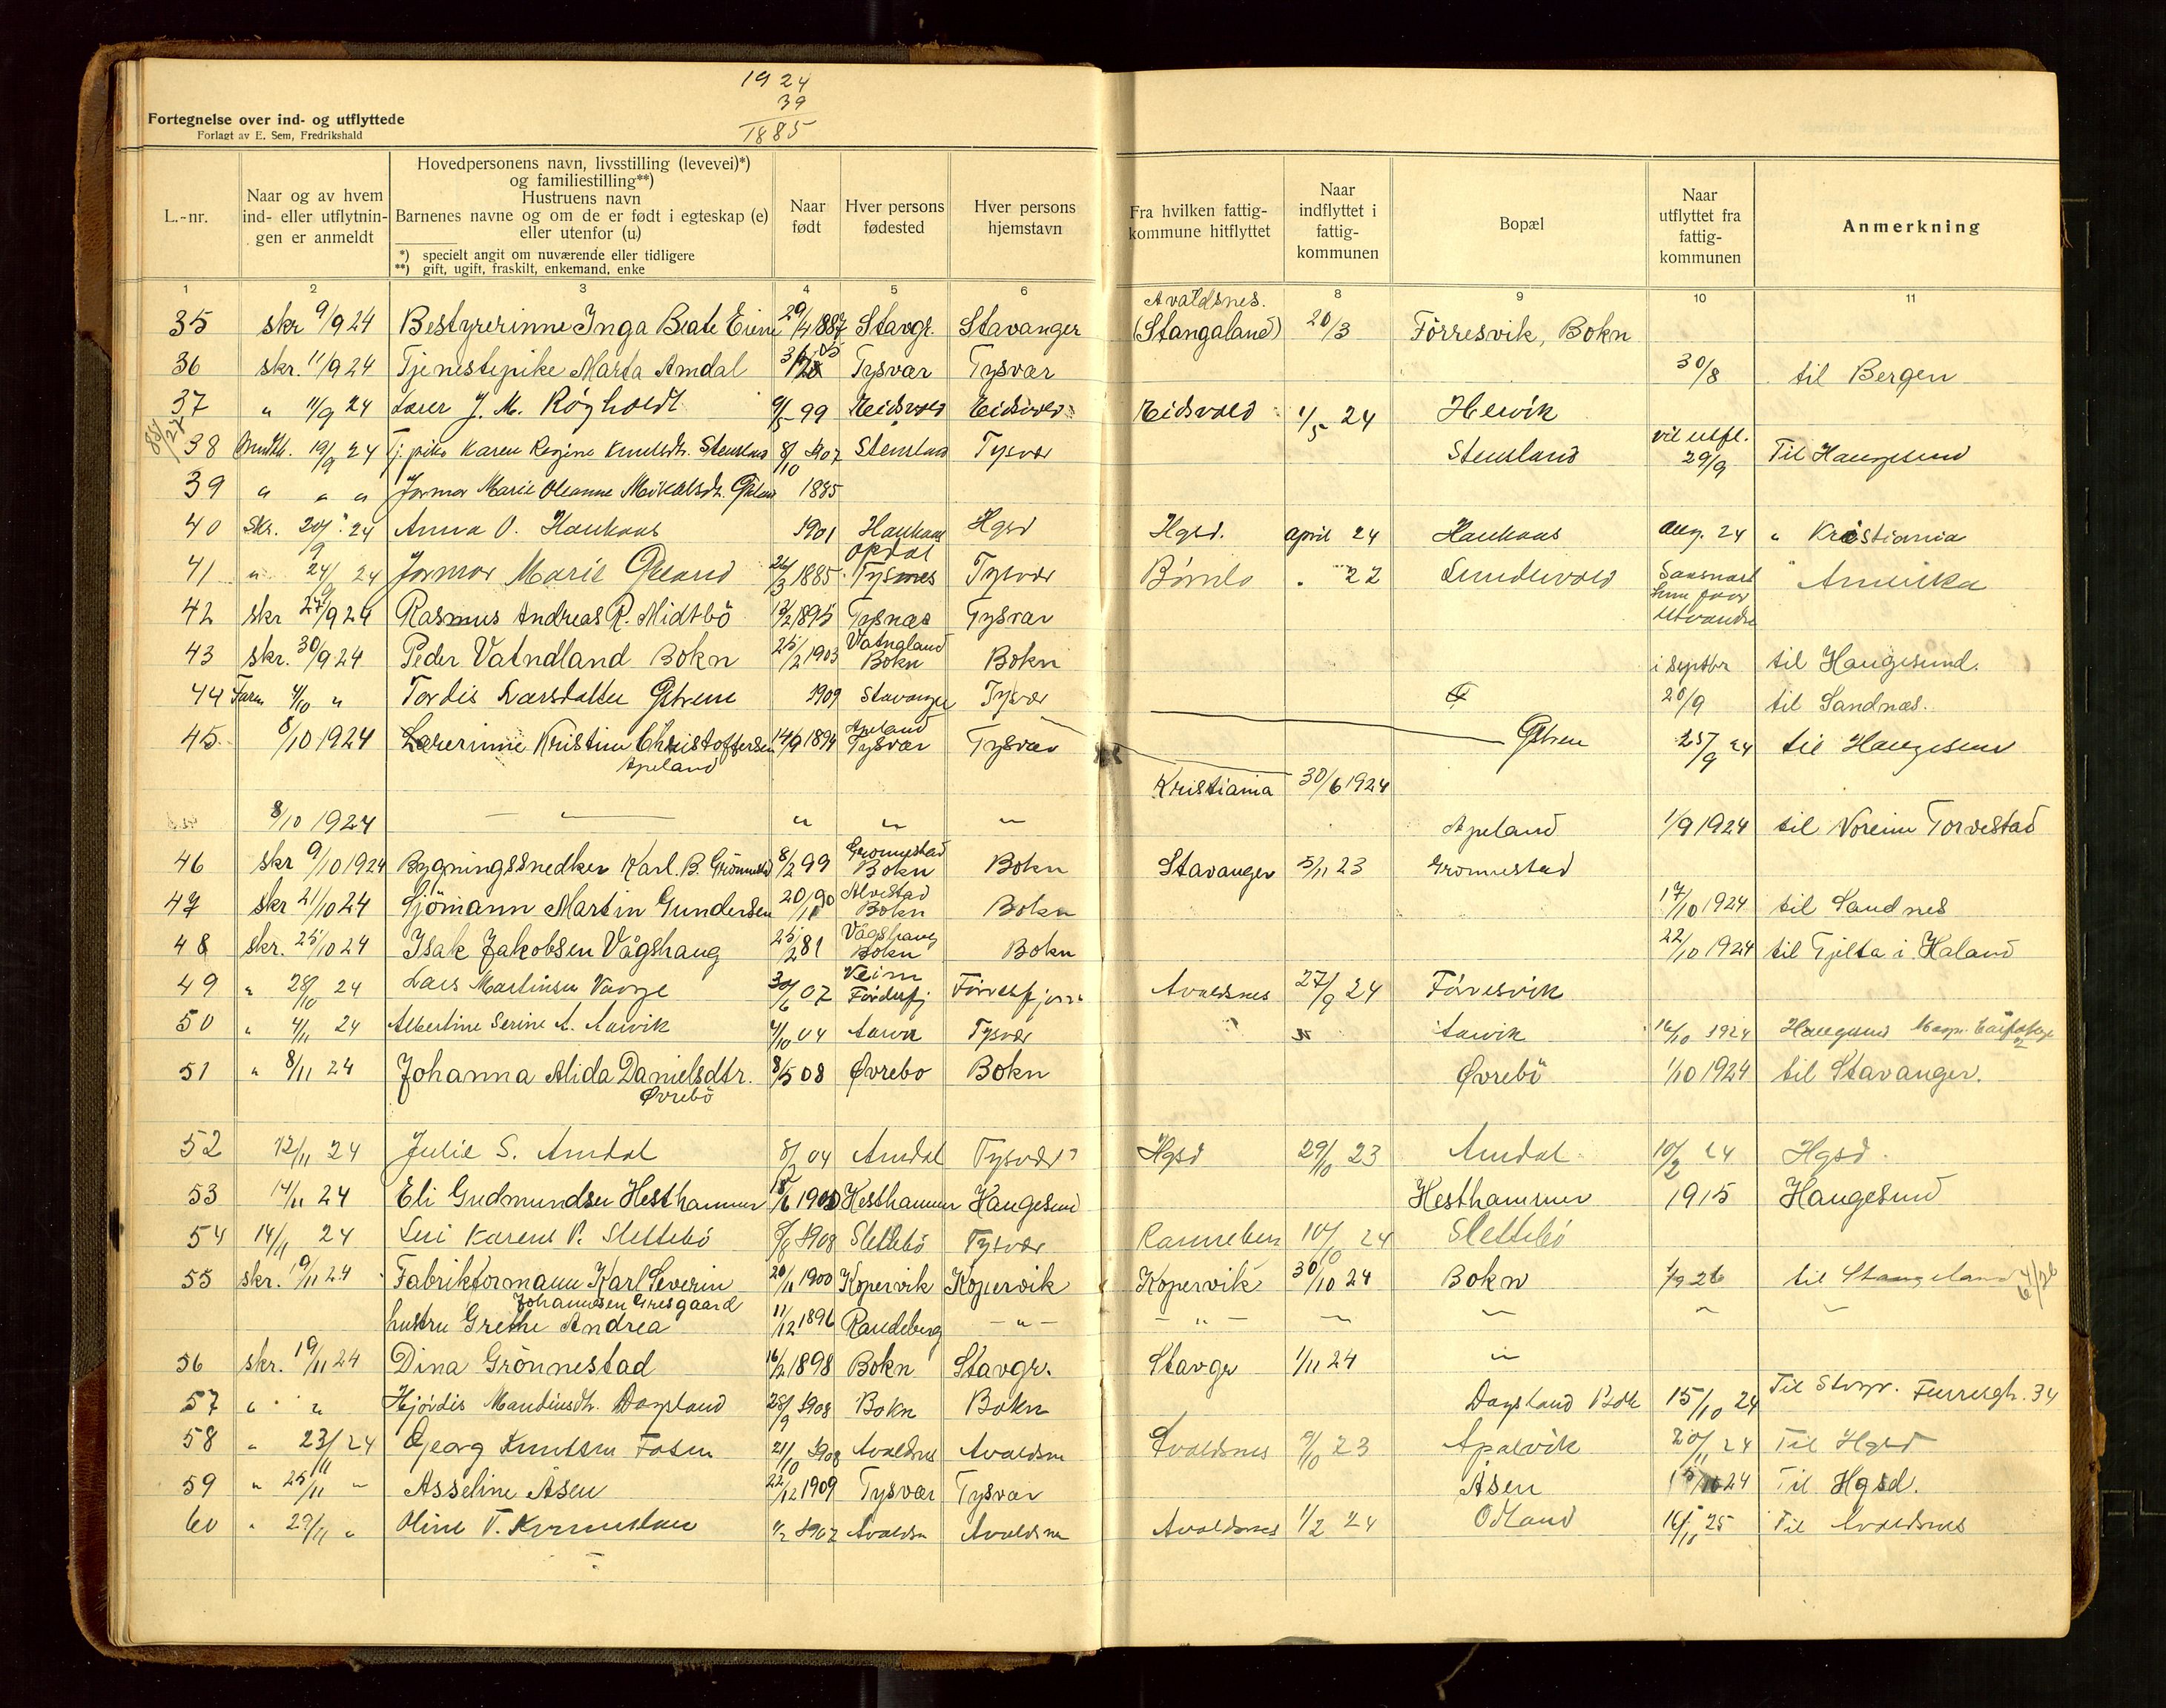 1924
39
1885
Fortegnelse over ind- og utflyttede
Forlagt av E. Sem, Fredrikshald
L.-nr.
Naar og av hvem
ind- eller utflytnin-
gen er anmeldt
Hovedpersonens navn, livsstilling (levevei)*)
og familiestilling**)
Hustruens navn
Barnenes navne og om de er født i egteskap (e)
eller utenfor (u)
*) specielt angit om nuværende eller tidligere
**) gift, ugift, fraskilt, enkemand, enke
Naar
født
Hver persons
fødested
Hver persons
hjemstavn
Fra hvilken fattig-
kommune hitflyttet
Naar
indflyttet i
fattig-
kommunen
Bopæl
Naar
utflyttet fra
fattig-
kommunen
Anmerkning
1 2 3 4 5 6 8 9 10 11
Avaldsnes.
35 skr 9/9 24 Bestyrerinne Inga Beate Eiene 29/4 1887 Stavgr. Stavanger (Stangaland) 20/3 Förresvik, Bokn
36 skr. 11/9 24 Tjenestepike Marta Amdal Tysvær Tysvær 30/8 til Bergen
37 " 11/9 24 Lærer J. M. Röyholdt 99 Eidsvold Eidsvold Eidsvold 1/5 24 Hervik
vil utfl.
38 19/9 24 Tj. pike Karen Regine Knutsdtr. Stensland 8/10 1907 Stensland Tysvær Stensland 29/9 Til Haugesund
39 " " " Jormor Marie Oleanne Mikalsdtr. 1885
40 Skr. 20/9 24 Anna O. Haukaas 1901 Haukaas Hgsd Hgsd. april 24 Haukaas aug. 24 " Kristiania
Opdal
41 " 24/9 24 Jormor Marie 24/3 1885 Tysnes Tysvær Bömlo " 22 Saasnart " Amerika
hun faar
utvandre
42 skr 27/9 24 Rasmus Andreas R. Midtbö 1895 Tysnæs Tysvær
Vatnaland
43 skr. 30/9 24 Peder Vatndland Bokn 25/2 1903 Bokn Bokn i Septbr til Haugesund.
44 4/10 " Tordis Larsdatter 1909 Stavanger Tysvær 20/9 til Sandnæs.
Apeland
45 8/10 1924 Lærerinne Kristine Christoffersen 14/9 1894 Tysvær Tysvær 25/9 24 til Haugesund
Apeland
Kristiania 30/6 1924
8/10 1924 — " — " " " Apeland 1/9 1924 til Noreim Torvestad
Grönnestad
46 skr 9/10 1924 Bygningssnedker Karl. B. Grönnestad 8/2 99 Bokn Bokn Stavanger 5/11 23 Grönnestad
Alvestad
47 skr 21/10 24 Sjömann Martin Gundersen 20/11 90 Bokn Bokn 17/10 1924 til Sandnes
Vågshaug
48 skr. 25/10 24 Isak Jakobsen Vågshaug 25/2 81 Bokn Bokn 22/10 1924 til Tjelta i Haland
49 " 28/10 24 Lars Martinsen 30/6 07 Avaldsnes 27/9 24 Förresvik
50 " 4/11 24 Albertine Serine A. Aarvik 4/10 04 Aarvik Tysvær Aarvik 16/10 1924 Haugesund
51 " 8/11 24 Johanna Alida Danielsdtr. 8/5 08 Øvrebo Bokn Øvrebö 1/10 1924 til Stavanger.
Øvrebö
52 12/11 24 Julie S. Amdal 8/2 04 Amdal Tysvær? Hgsd 29/10 23 Amdal 10/2 24 Hgsd.
53 14/11 24 Eli Gudmundsen Hesthammer Hesthammer Haugesund Hesthammer 1915 Haugesund
54 14/11 24 Karene P. Slettebö 8/8 1908 Slettebö Tysvær 10/10 24 Slettebö
55 skr. 19/11 24 Fabrikformann Karl Severin 20/11 1900 Kopervik Kopervik Kopervik 30/10 24 Bokn 1/9 26 til Stangeland
Johannesen Giesgaard
hustru Grethe Andrea 11/12 1896 Randeberg — " — — " — " " "
56 skr. 19/11 24 Dina Grönnestad 16/2 1898 Bokn Stavgr. Stavgr 1/11 24 "
57 " " Hjördis Dagsland 28/9 1908 Bokn Bokn Dagsland 15/10 24 Til Stvgr. 34
58 " 23/11 24 Georg Knutsen Fosen 21/10 1908 Avaldsnes Avaldsn Avaldsnes 9/10 23 Apalvik 20/11 24 Til Hgsd
59 " 25/11 " Asseline Åsen 22/12 1909 Tysvær Tysvær Åsen 24 Til Hgsd.
60 " 29/11 " Oline T. 1907 Avaldsn Avaldsne Avaldsnes 1/2 24 Odland 25 Til Avaldsnes